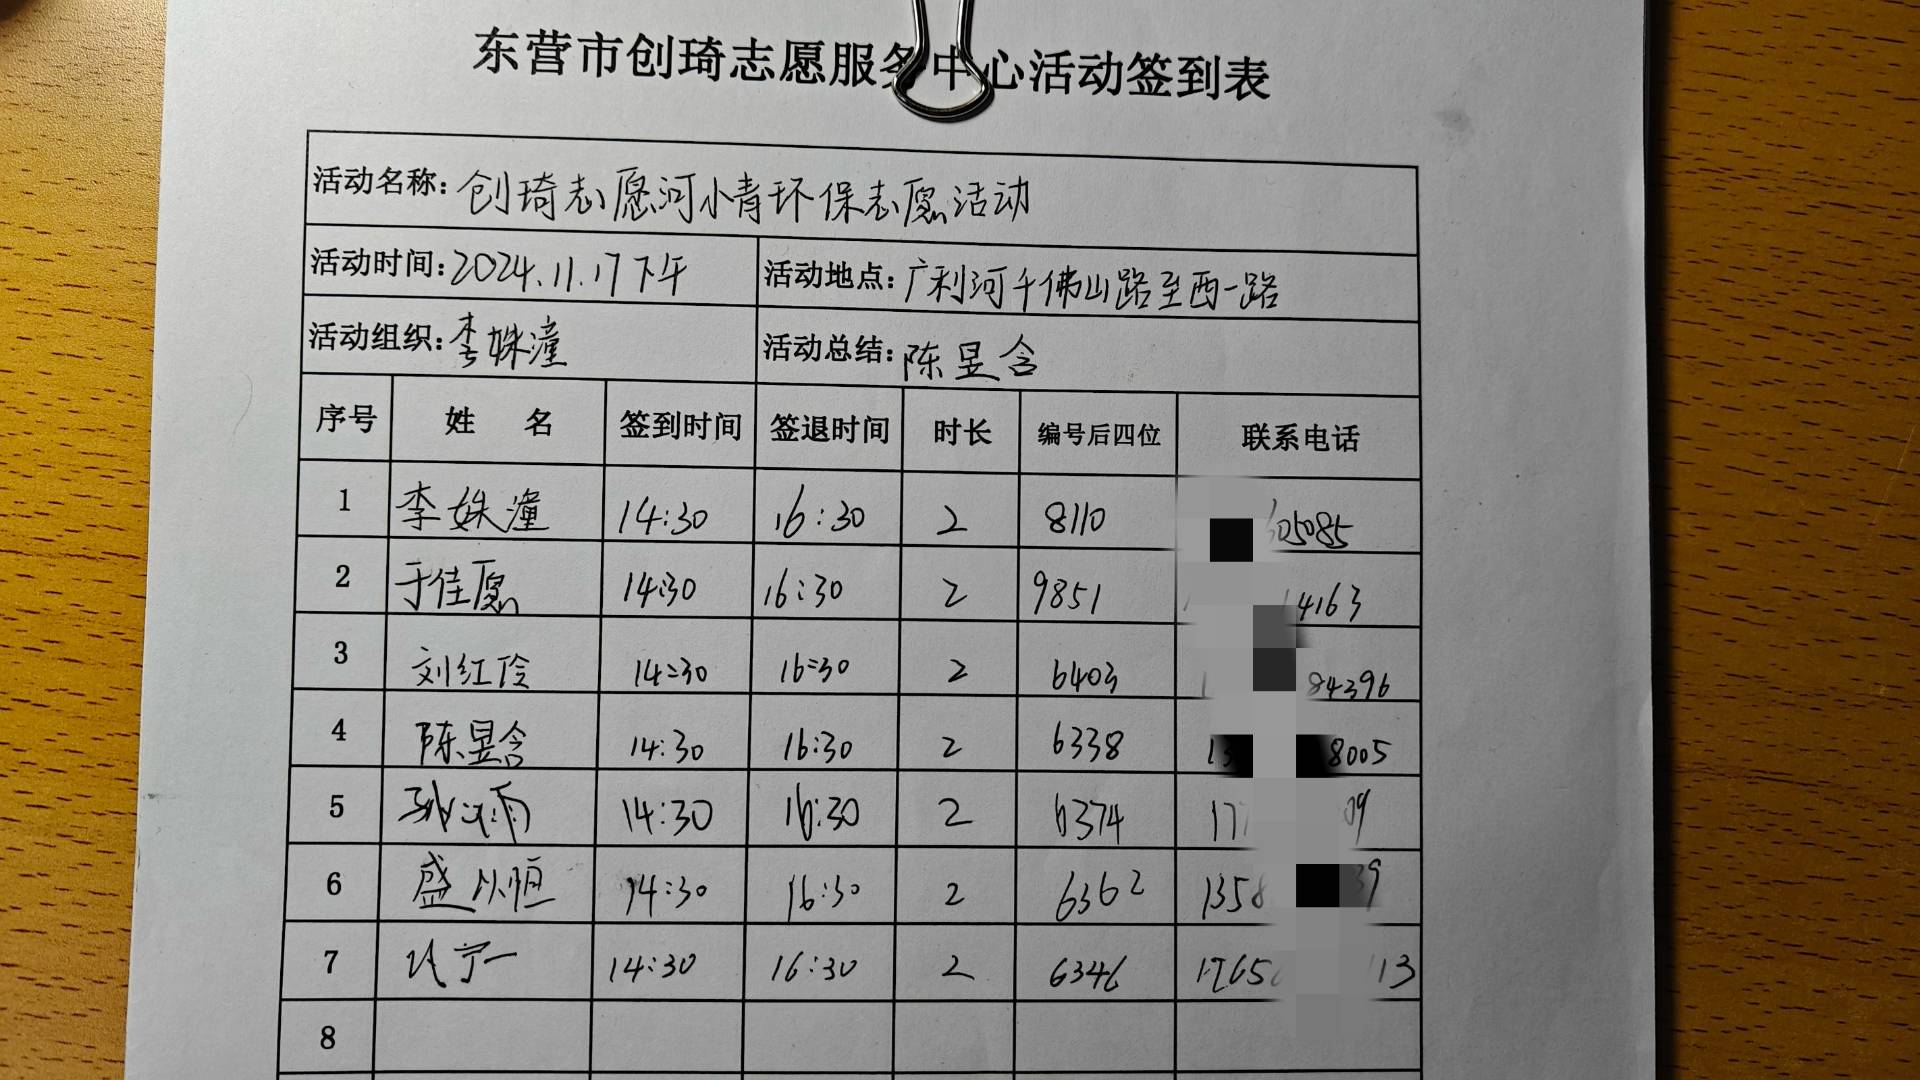 东营市创琦志愿服务中心活动签到表
活动名称：创琦志愿河小青环保志愿活动
活动时间：2024.11.17下午 活动地点：广利河千佛山路至西一路
活动组织：李姝潼 活动总结：陈昱含
序号 姓 名 签到时间 签退时间 时长 编号后四位 联系电话
1 李姝潼 14:30 16:30 2 8110 605085
2 于佳愿 14:30 16:30 2 9851 14163
3 刘红伶 14:30 16:30 2 6403 1 84396
4 陈昱含 14:30 16:30 2 6338 13 8005
5 14:30 16:30 2 6374 17 09
6 盛 恒 14:30 16:30 2 6362 1358 39
7 14:30 16:30 2 6346 1765 13
8